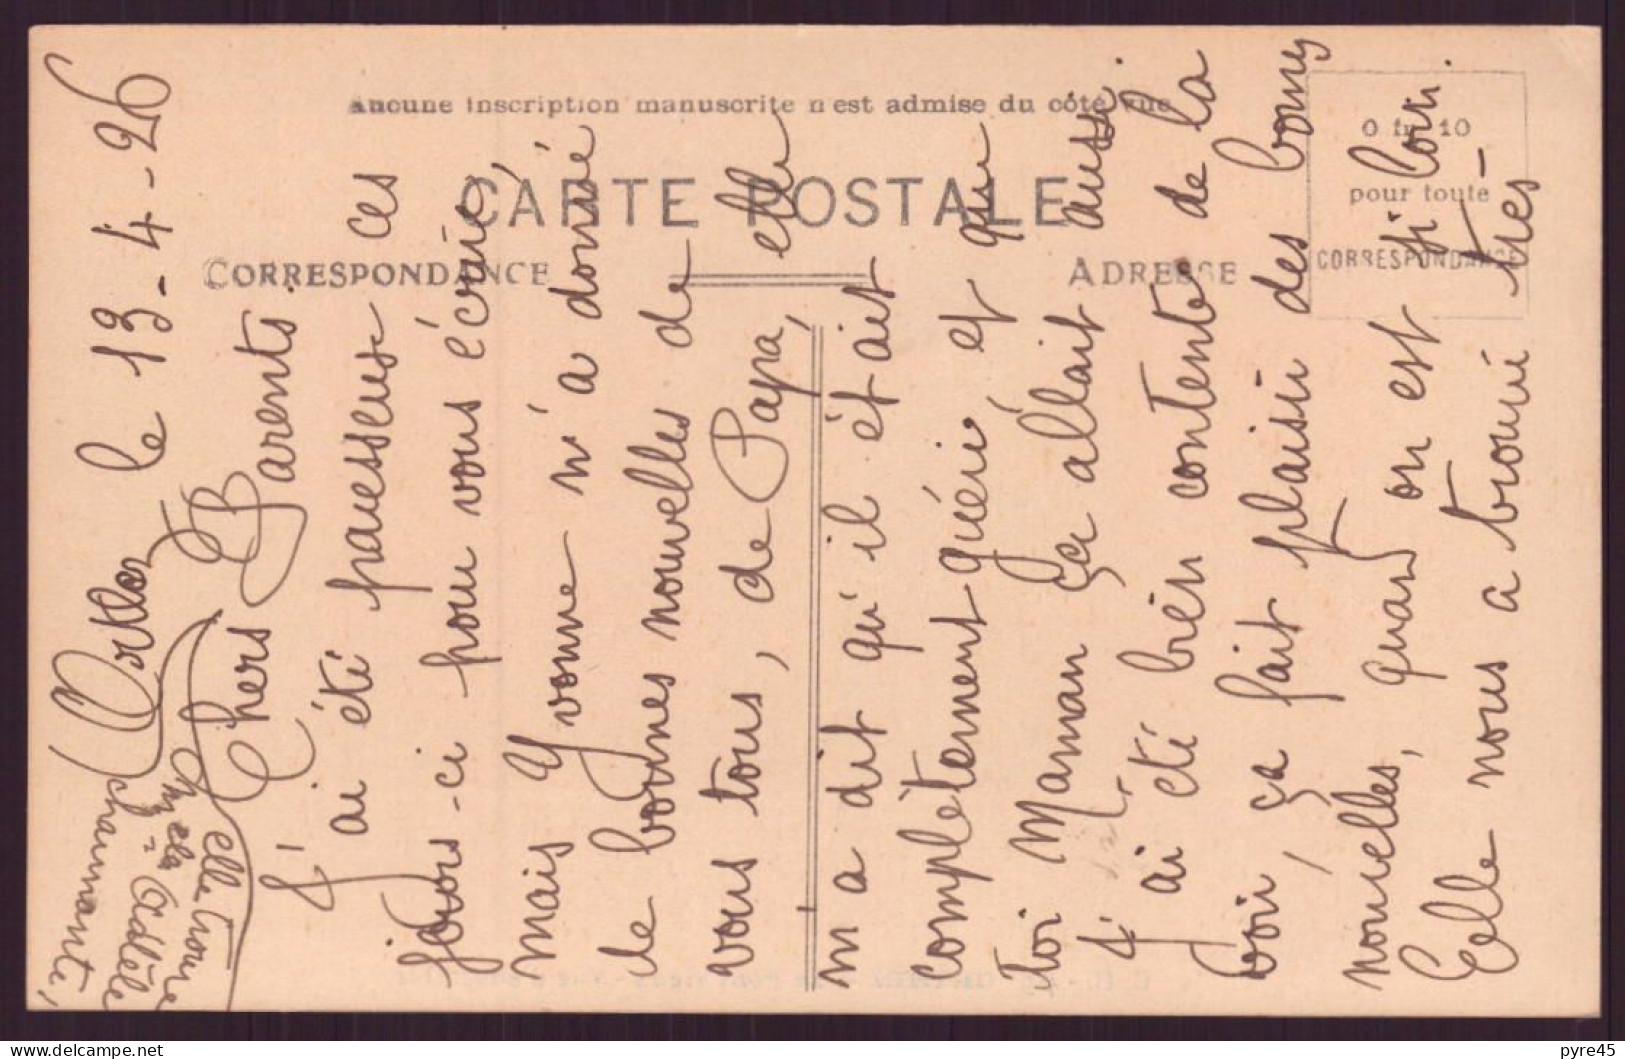 Aucune inscription manuscrite n'est admise du côté vue
CARTE POSTALE
CORRESPONDANCE
ADRESSE
0 fr. 10
pour toute
CORRESPONDANCE
le 13-4-26
Chers Parents.
J'ai été paresseuse ces
jours-ci pour vous écrire,
mais Yvonne m'a donné
de bonnes nouvelles de
vous tous, de Papa, elle
m'a dit qu'il était
complètement guéri et que
toi Maman ça allait aussi.
J'ai été bien contente de la
voir, ça fait plaisir des bonnes
nouvelles, quand on est si loin.
Celle nous a trouvé très-
elle trouve
Odèle
charmante,
delcampe.net
pyre45